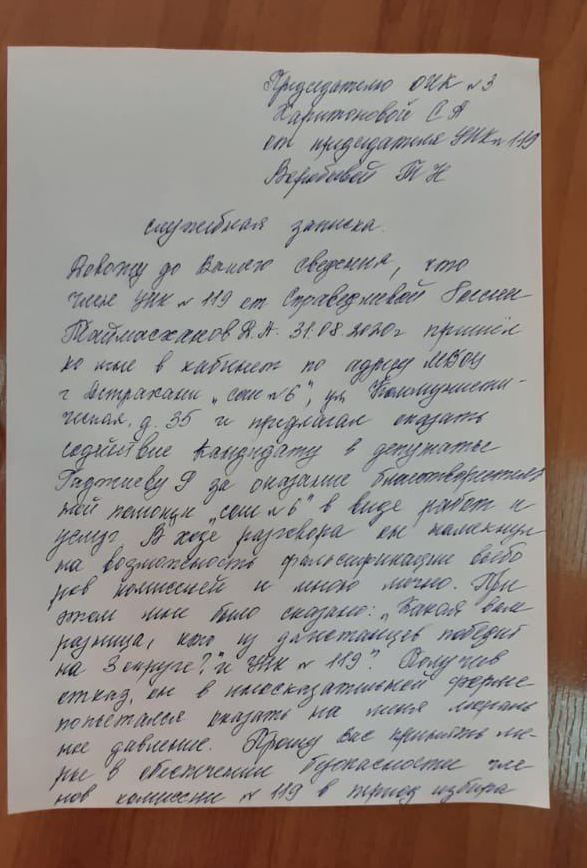 Председателю ОИК №3
Харитоновой С А
от председателя УИК№119
Воробьевой Т Н
служебная записка.
Довожу до Вашего сведения, что
член УИК №119 от Справедливой России
Таймасханов Д.А. 31.08.2020г пришёл
ко мне в кабинет по адресу МБОУ
г Астрахани „сош №6", ул Коммунисти-
ческая, д. 35 и предлагал оказать
содействие кандидату в депутаты
Гаджиеву Я за оказание благотворитель
ной помощи „сош №6" в виде работ и
услуг В ходе разговора он намекнул
на возможность фальсификации выбо
ров комиссией и мною лично. При
этом мне было сказано: „Какая вам
разница, кто из дагестанцев победит
на 3 округе?" и УИК №119". Получив
отказ, он в иносказательной форме
попытался оказать на меня мораль
ное давление. Прошу Вас принять ме-
ры в обеспечении безопасности чле
нов комиссии №119 в период избира